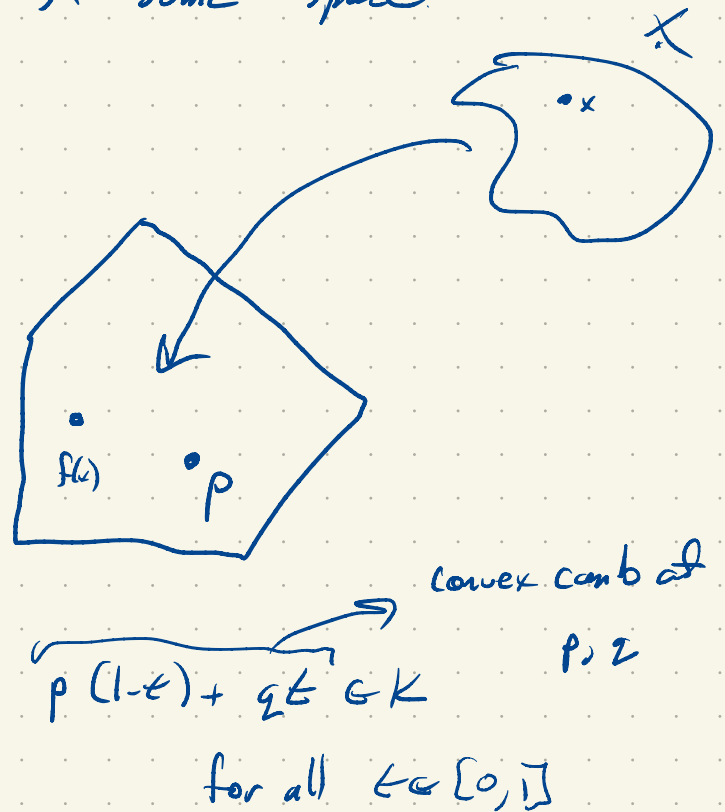 X some space
X
x
f(x)
p
convex comb of
p, q
p (1-t) + qt ∈ K
for all t ∈ [0,1]